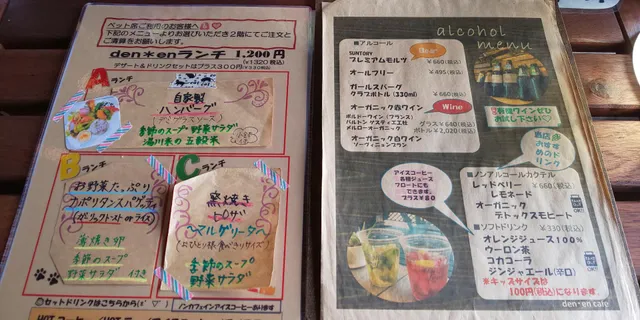 ペット席ご利用のお客様へ
下記のメニューよりお選びいただき2階にてご注文と
ご清算をお願いします。
den＊enランチ 1,200円
(¥1320税込)
デザート&ドリンクセットはプラス300円
ランチ
自家製
ハンバーグ
季節のスープ 野菜サラダ
湯川米の五穀米
B ランチ
お野菜たっぷり
(ガーリックトースト or ライス)
季節のスープ
野菜サラダ 付き
C ランチ
窯焼き
ピザ
〜マルゲリータ〜
季節のスープ
野菜サラダ
セットドリンクはこちらから
ノンカフェインアイスコーヒーあります
alcohol
menu
■アルコール
Beer
SUNTORY
プレミアムモルツ ¥660(税込)
オールフリー ¥495(税込)
ガールスバーグ
クラブボトル (330ml) ¥660(税込)
オーガニック赤ワイン
Wine
ボルドーワイン (フランス)
バルトン マスティエ エ社
メルローオーガニック
グラス ¥660(税込)
ボトル ¥2,020(税込)
オーガニック白ワイン
ソーヴィニョンブラン
有機ワインぜひ
お試し下さい♡
店長の
おすす
めのド
リンク
アイスコーヒー
各種ジュース
フロートに
できます。
プラス¥80
■ノンアルコールカクテル
レッドベリー ¥660(税込)
レモネード
オーガニック
デトックスモヒート
■ソフトドリンク ¥330(税込)
オレンジジュース100%
ウーロン茶
コカコーラ
ジンジャエール(辛口)
※キッズサイズが
100円(税込)になります
den*en cafe